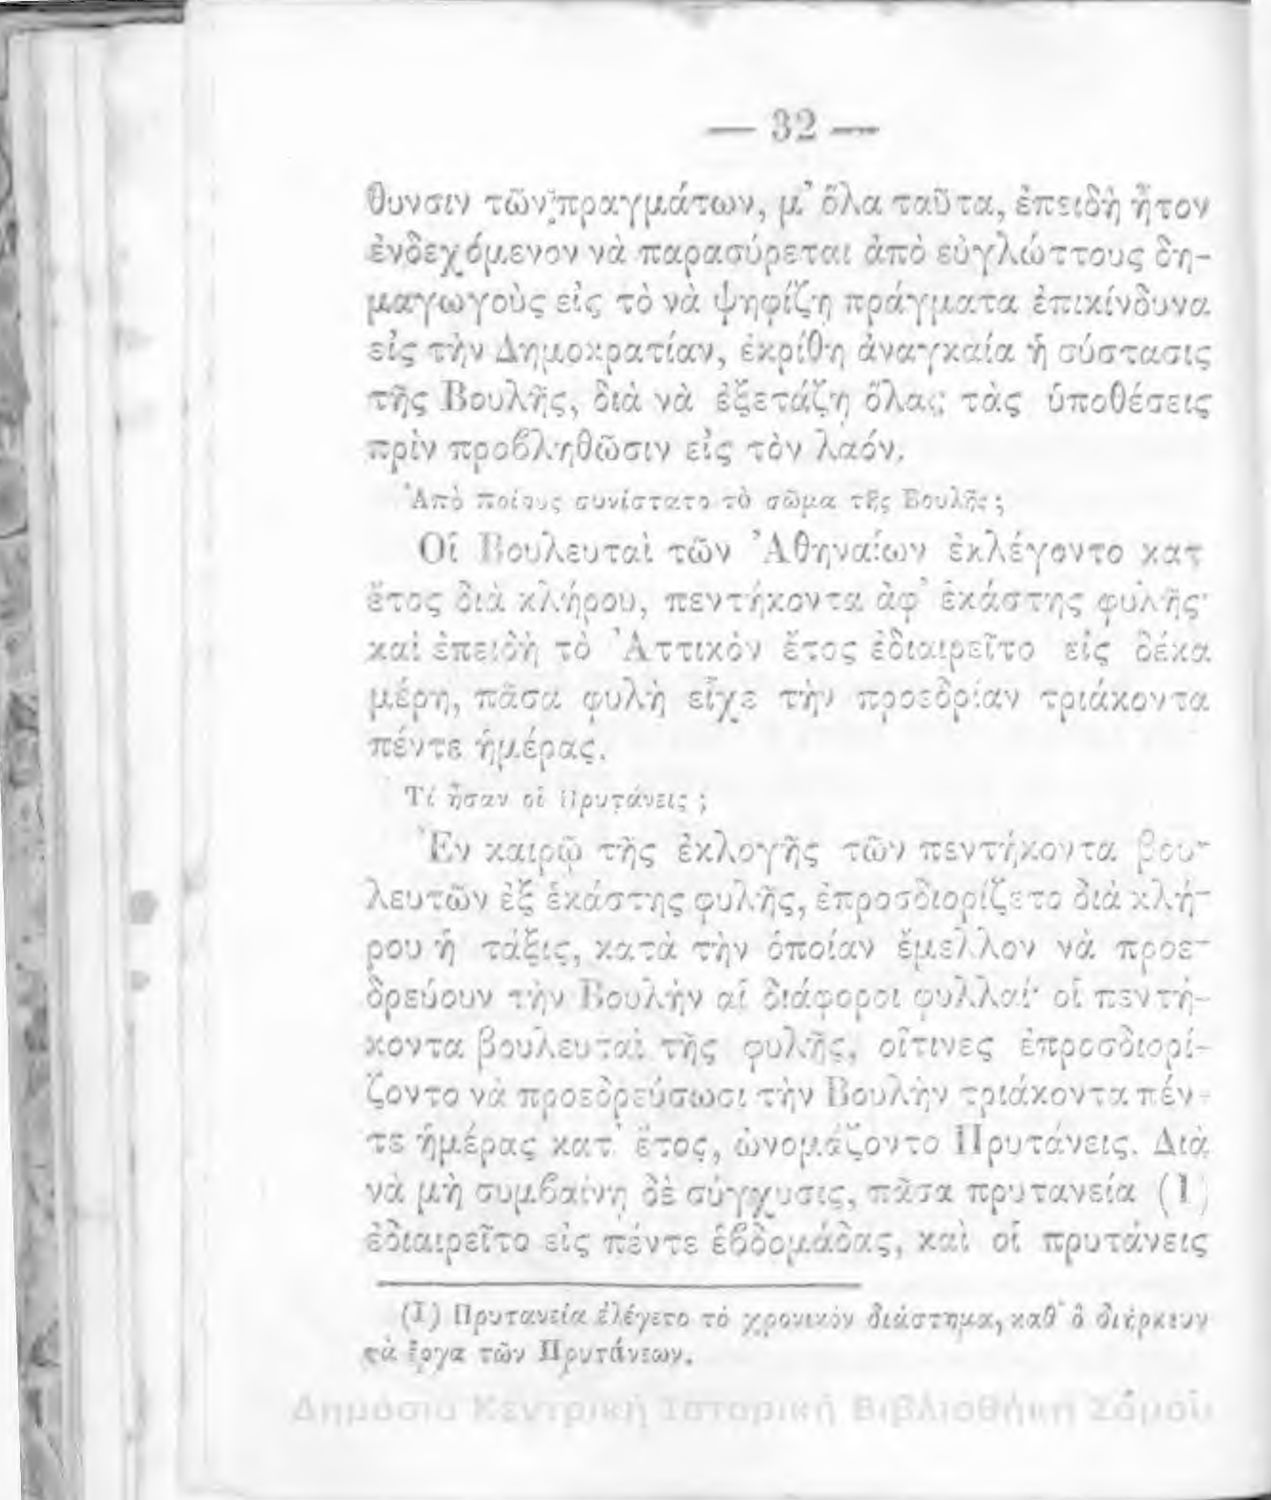 — 32 —
θυνσιν τῶν πραγμάτων, μ’ ὅλα ταῦτα, ἐπειδὴ ἦτον
ἐνδεχόμενον νὰ παρασύρεται ἀπὸ εὐγλώττους δη-
μαγωγοὺς εἰς τὸ νὰ ψηφίζῃ πράγματα ἐπικίνδυνα
εἰς τὴν Δημοκρατίαν, ἐκρίθη ἀναγκαία ἡ σύστασις
τῆς Βουλῆς, διὰ νὰ ἐξετάζῃ ὅλας τὰς ὑποθέσεις
πρὶν προβληθῶσιν εἰς τὸν λαόν.
Ἀπὸ ποίους συνίστατο τὸ σῶμα τῆς Βουλῆς;
Οἱ Βουλευταὶ τῶν Ἀθηναίων ἐκλέγοντο κατ
ἔτος διὰ κλήρου, πεντήκοντα ἀφ’ ἑκάστης φυλῆς·
καὶ ἐπειδὴ τὸ Ἀττικὸν ἔτος ἐδιαιρεῖτο εἰς δέκα
μέρη, πᾶσα φυλὴ εἶχε τὴν προεδρίαν τριάκοντα
πέντε ἡμέρας.
Τί ἦσαν οἱ Πρυτάνεις;
Ἐν καιρῷ τῆς ἐκλογῆς τῶν πεντήκοντα βου-
λευτῶν ἐξ ἑκάστης φυλῆς, ἐπροσδιορίζετο διὰ κλή-
ρου ἡ τάξις, κατὰ τὴν ὁποίαν ἔμελλον νὰ προε-
δρεύουν τὴν Βουλὴν αἱ διάφοροι φυλλαί· οἱ πεντή-
κοντα βουλευταὶ τῆς φυλῆς, οἵτινες ἐπροσδιορί-
ζοντο νὰ προεδρεύσωσι τὴν Βουλὴν τριάκοντα πέν-
τε ἡμέρας κατ’ ἔτος, ὠνομάζοντο Πρυτάνεις. Διὰ
νὰ μὴ συμβαίνῃ δὲ σύγχυσις, πᾶσα πρυτανεία (1)
ἐδιαιρεῖτο εἰς πέντε ἑβδομάδας, καὶ οἱ πρυτάνεις
(1) Πρυτανεία ἐλέγετο τὸ χρονικὸν διάστημα, καθ’ ὃ διήρκουν
τὰ ἔργα τῶν Πρυτάνεων.
Δημόσια Κεντρική Ιστορική Βιβλιοθήκη Σάμου